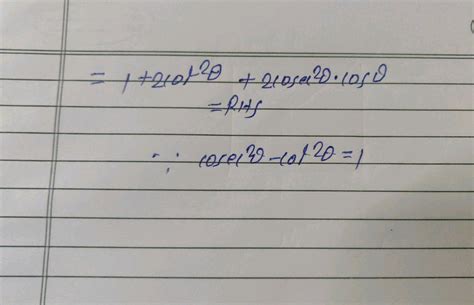 = 1 + 2cot²θ + 2cosec²θ·cosθ
= RHS
∵ cosec²θ - cot²θ = 1